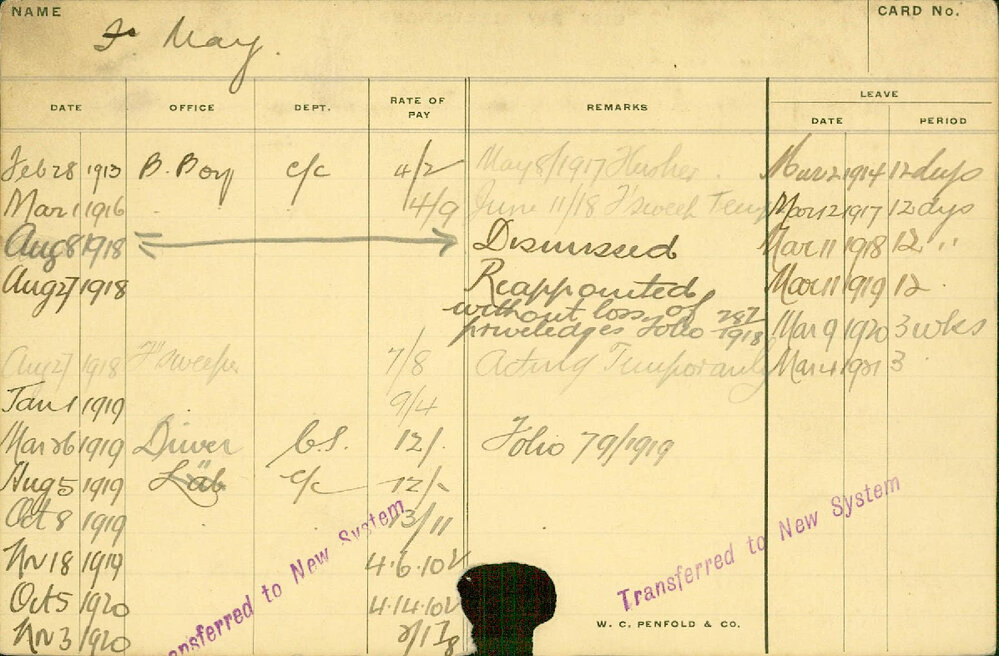 NAME
F May.
CARD No.
DATE OFFICE DEPT. RATE OF PAY REMARKS LEAVE
DATE PERIOD
Feb 28 1913 B. Boy c/c 4/2 May 8/1917 Flusher. Mar 2 1914 12 days
Mar 1 1916 4/9 June 11/18 F'sweep Temp Mar 12 1917 12 dys
Aug 8 1918 Dismissed Mar 11 1918 12 "
Aug 27 1918 Reappointed Mar 11 1919 12
without loss of
priviledges Folio 287/1918 Mar 9 1920 3 wks
Aug 27 1918 F'sweeper 7/8 Acting Temporarily Mar 4 1921 3
Jan 1 1919 9/4
Mar 26 1919 Driver 12/- Folio 79/1919
Aug 5 1919 Lab c/c 12/-
Oct 8 1919 13/11
Nv 18 1919 4.6.10½
Oct 5 1920 4.14.10½
Nv 3 1920
Transferred to New System
Transferred to New System
W. C. PENFOLD & CO.